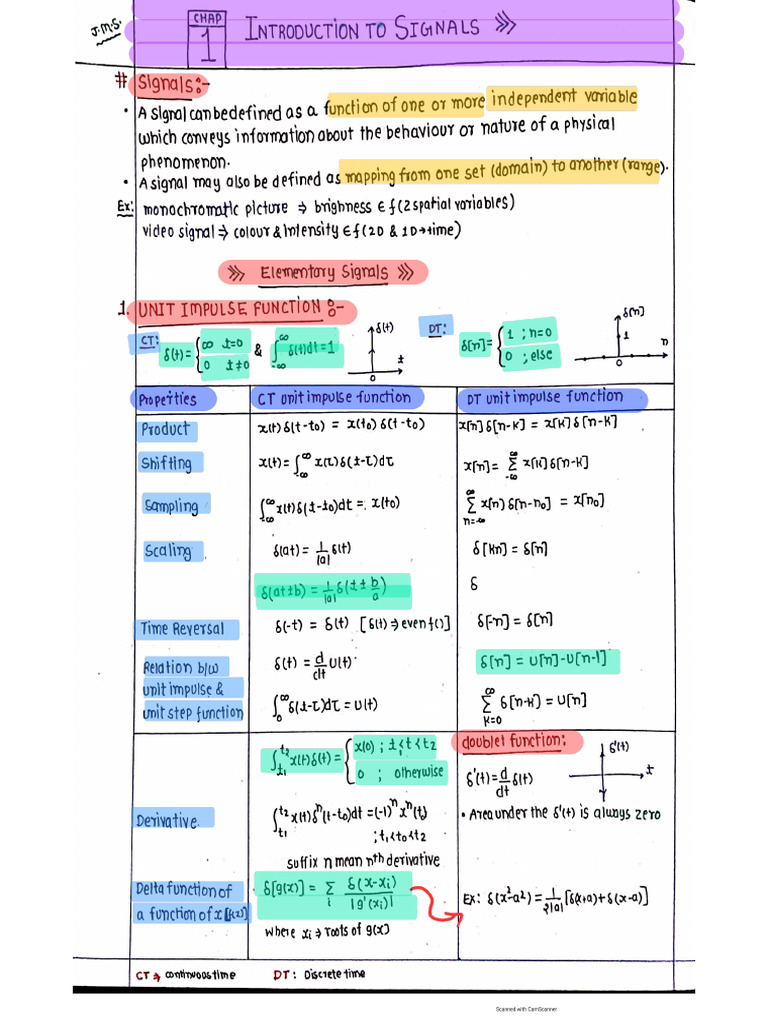 J.M.S.
CHAP 1 INTRODUCTION TO SIGNALS >>>
# Signals:-
• A signal can be defined as a function of one or more independent variable
which conveys information about the behaviour or nature of a physical
phenomenon.
• A signal may also be defined as mapping from one set (domain) to another (range).
Ex: monochromatic picture ⇒ brighness ∈ f(2 spatial variables)
video signal ⇒ colour & Intensity ∈ f(2D & 1D→time)
>>> Elementary Signals >>>
1. UNIT IMPULSE FUNCTION :-
CT: δ(t) = { ∞ t=0 ; 0 t≠0 & ∫_{-∞}^{∞} δ(t)dt = 1
δ(t) t 0
DT: δ[n] = { 1 ; n=0 ; 0 ; else
δ[n] 1 n 0
Properties CT unit impulse function DT unit impulse function
Product x(t) δ(t-t₀) = x(t₀) δ(t-t₀) x[n] δ[n-k] = x[k] δ[n-k]
Shifting x(t) = ∫_{-∞}^{∞} x(τ) δ(t-τ)dτ x[n] = Σ_{-∞}^{∞} x[k] δ[n-k]
Sampling ∫_{-∞}^{∞} x(t) δ(t-t₀)dt = x(t₀) Σ_{n=-∞}^{∞} x[n] δ[n-n₀] = x[n₀]
Scaling δ(at) = 1/|a| δ(t) δ[kn] = δ[n]
δ(at±b) = 1/|a| δ(t ± b/a) δ
Time Reversal δ(-t) = δ(t) [δ(t) ⇒ even f()] δ[-n] = δ[n]
Relation b/w
unit impulse &
unit step function
δ(t) = d/dt U(t) δ[n] = U[n]-U[n-1]
∫_{0}^{∞} δ(t-τ)dτ = U(t) Σ_{k=0}^{∞} δ[n-k] = U[n]
∫_{t₁}^{t₂} x(t) δ(t) = { x(0) ; t₁<t<t₂ ; 0 ; otherwise
doublet function:
δ'(t) = d/dt δ(t)
δ'(t) t
• Area under the δ'(t) is always zero
Derivative ∫_{t₁}^{t₂} x(t) δⁿ(t-t₀)dt = (-1)ⁿ xⁿ(t₀)
; t₁<t₀<t₂
suffix n mean nth derivative
Delta function of
a function of x [g(x)]
δ[g(x)] = Σ_i δ(x-xᵢ)/|g'(xᵢ)|
where xᵢ ⇒ roots of g(x)
Ex: δ(x²-a²) = 1/2|a| [δ(x+a) + δ(x-a)]
CT ⇒ continuous time DT : Discrete time
Scanned with CamScanner